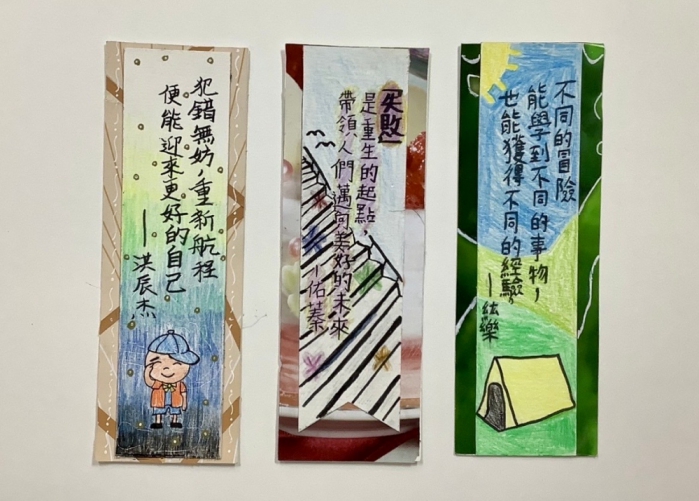 犯錯無妨，重新航程
便能迎來更好的自己
——洪辰杰
「失敗」
是重生的起點，
帶領人們邁向美好的未來
—佑蓁
不同的冒險
能學到不同的事物，
也能獲得不同的經驗。
—紘樂